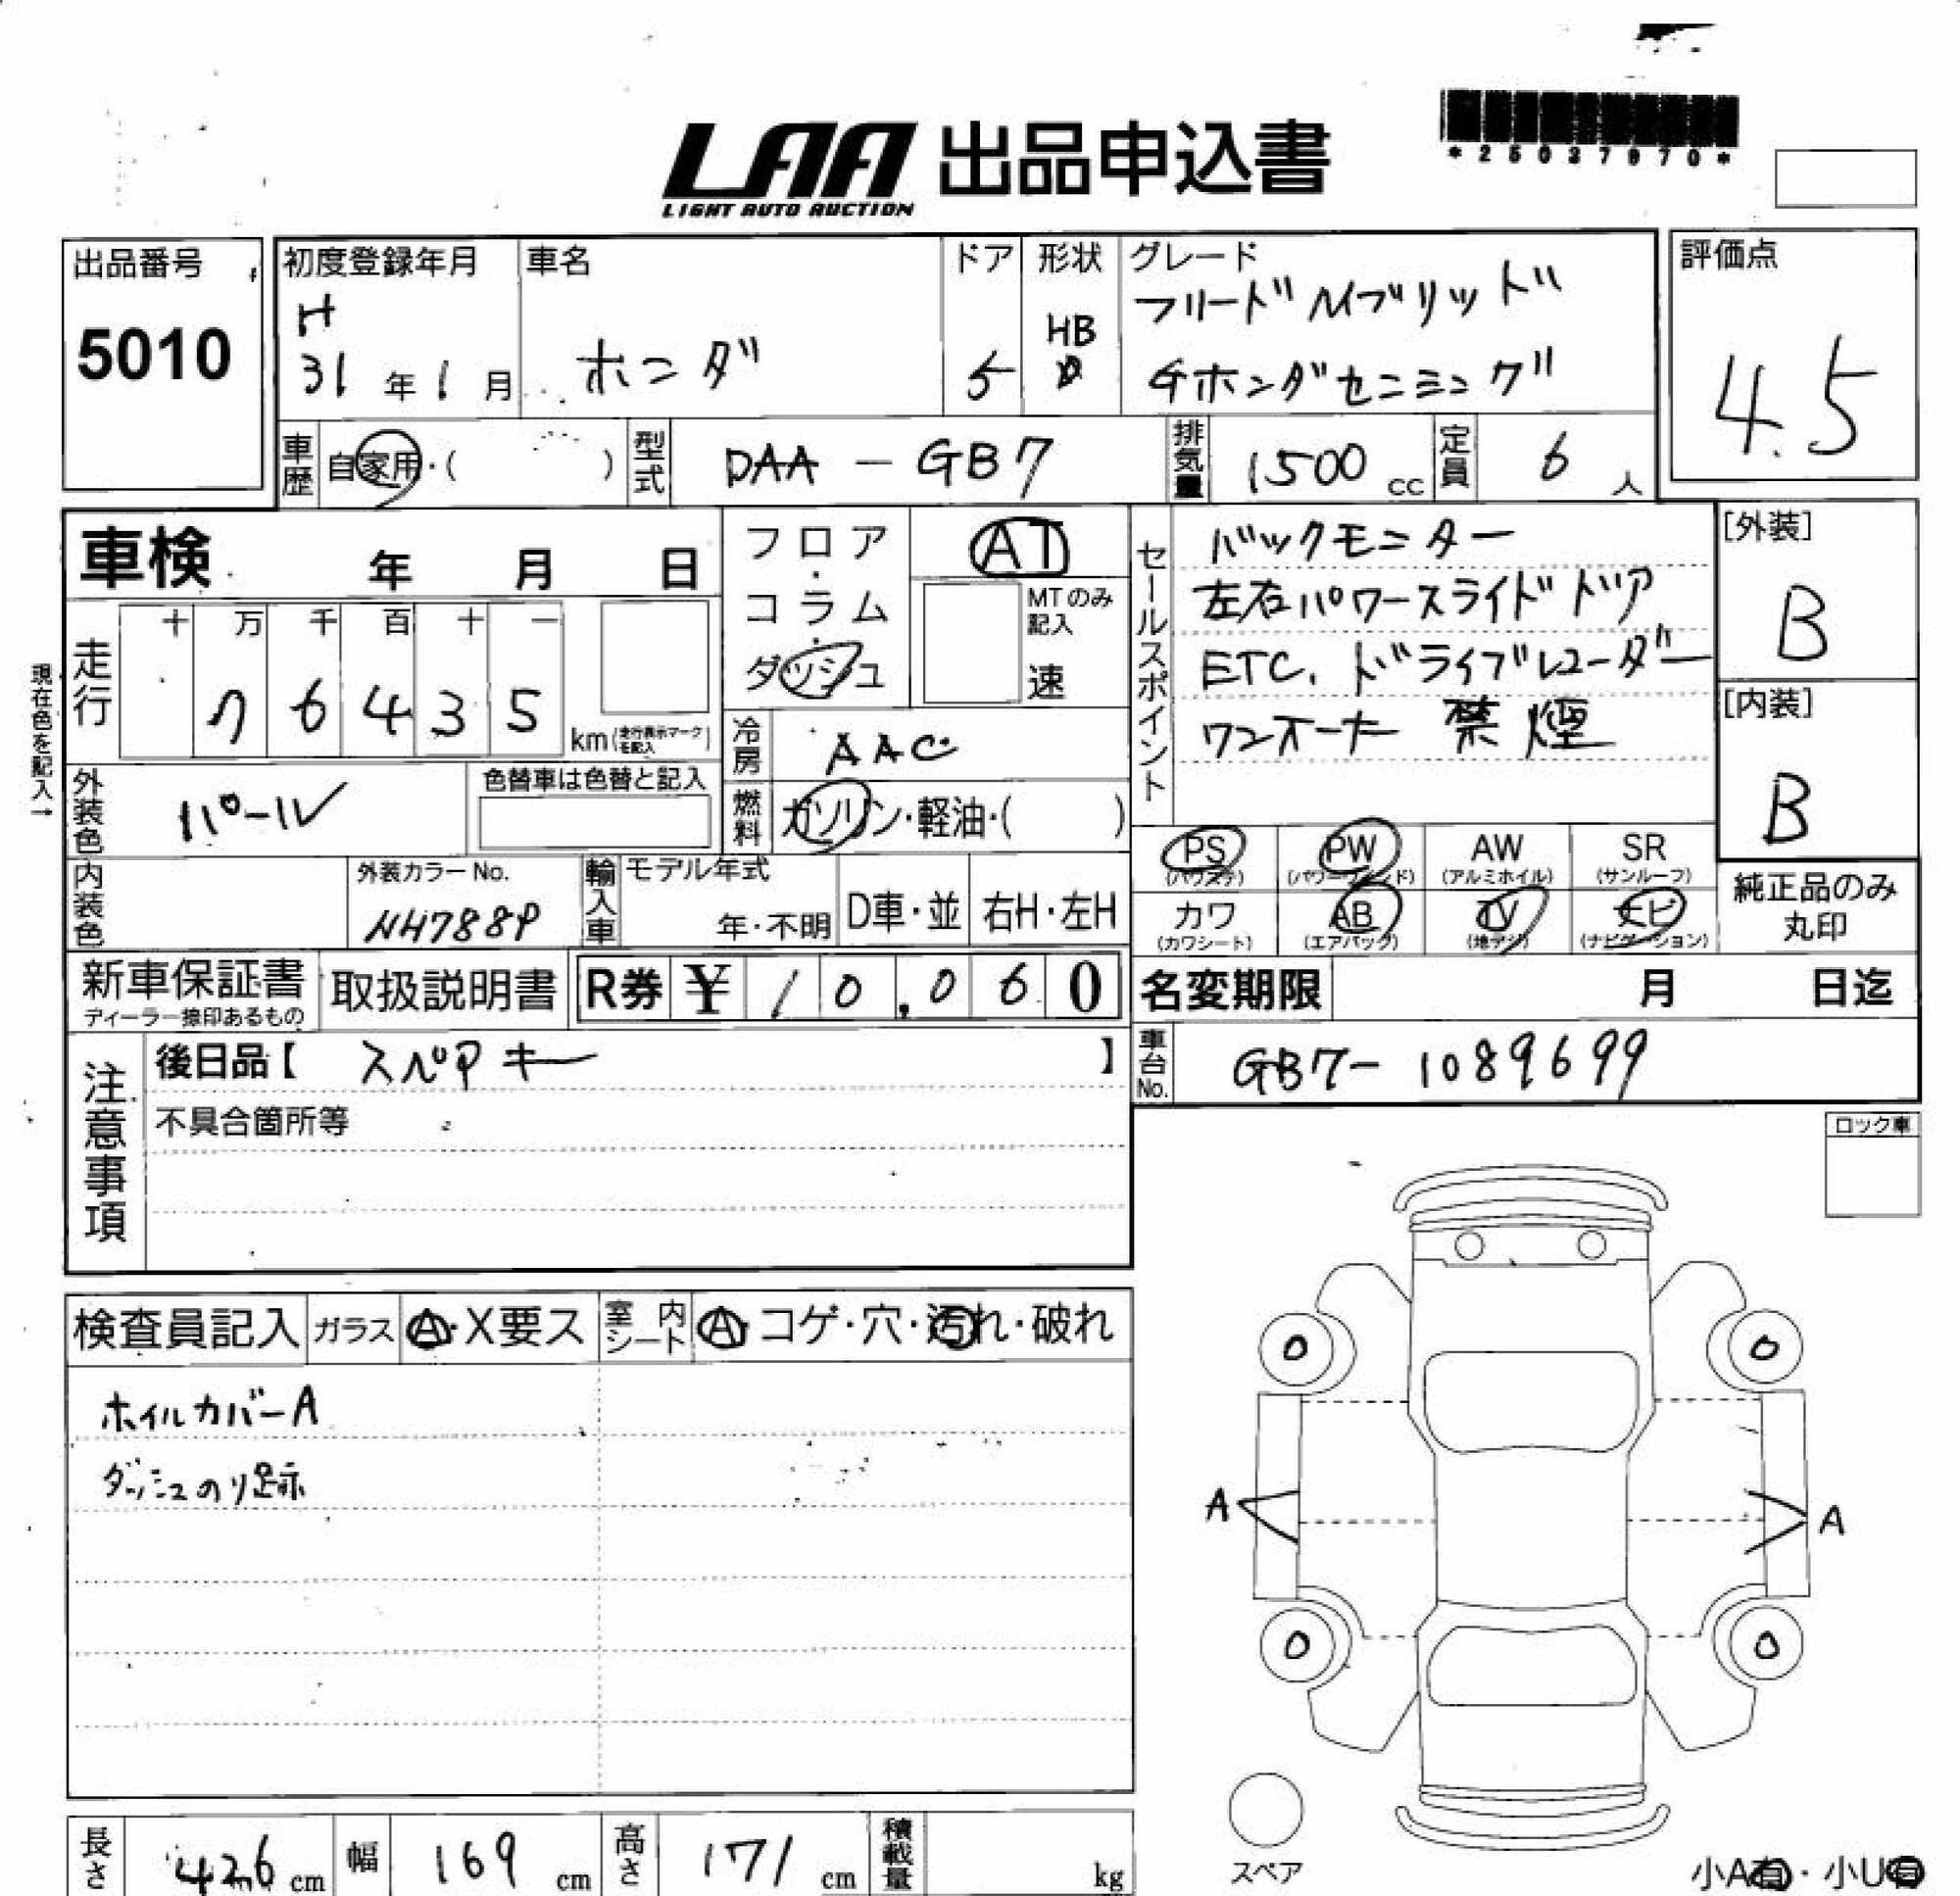 *25037970*
LAA 出品申込書
LIGHT AUTO AUCTION
出品番号
5010
初度登録年月
H
31年1月
車名
ホンダ
ドア
5
形状
HB
グレード
フリードハイブリッド
Gホンダセンシング
評価点
4.5
車歴
自家用・( )
型式
DAA-GB7
排気量
1500cc
定員
6人
車検 年 月 日
フロア・コラム・ダッシュ
AT
MTのみ記入
速
セールスポイント
バックモニター
左右パワースライドドア
ETC. ドライブレコーダー
ワンオーナー 禁煙
[外装]
B
[内装]
B
現在色を記入→
走行
十 万 千 百 十 一
76435
km(走行表示マークを記入)
冷房
AAC
燃料
ガソリン・軽油・( )
外装色
パール
色替車は色替と記入
内装色
外装カラーNo.
NH788P
輸入車
モデル年式
年・不明
D車・並
右H・左H
PS(パワステ)
PW(パワーウィンド)
AW(アルミホイル)
SR(サンルーフ)
カワ(カワシート)
AB(エアバック)
TV(地デジ)
ナビ(ナビゲーション)
純正品のみ丸印
新車保証書
ディーラー捺印あるもの
取扱説明書
R券 ¥10,060
名変期限 月 日迄
注意事項
後日品【スペアキー】
不具合箇所等
車台No.
GB7-1089699
ロック車
検査員記入
ガラス
A・X要ス
室内シート
A・コゲ・穴・汚れ・破れ
ホイルカバーA
ダッシュのり跡
0
0
A
A
0
0
スペア
長さ 426cm
幅 169cm
高さ 171cm
積載量 kg
小A有・小U有